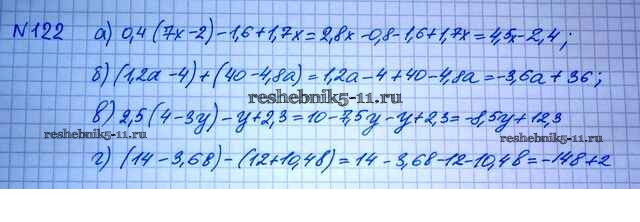 N122 а) 0,4(7x-2)-1,6+1,7x=2,8x-0,8-1,6+1,7x=4,5x-2,4;
б) (1,2а-4)+(40-4,8а)=1,2а-4+40-4,8а=-3,6а+36;
reshebnik5-11.ru
в) 2,5(4-3y)-y+2,3=10-7,5y-y+2,3=-8,5y+12,3
reshebnik5-11.ru
reshebnik5-11.ru
г) (14-3,6в)-(12+10,4в)=14-3,6в-12-10,4в=-14в+2